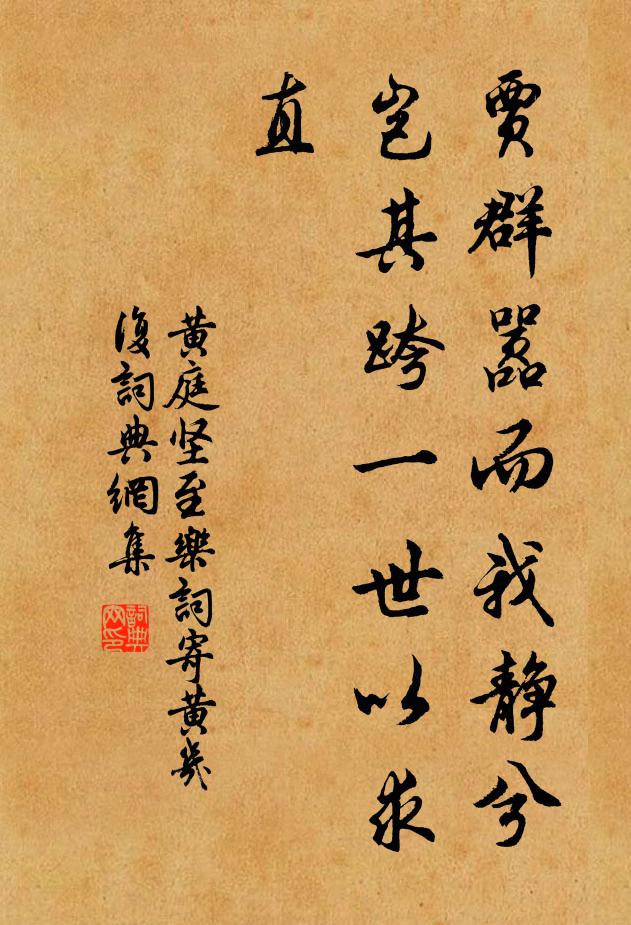 賈群嚣而我静兮
岂其跨一世以求
直
黄庭坚至樂詞寄黄幾
復詞典網集
詞典
网印